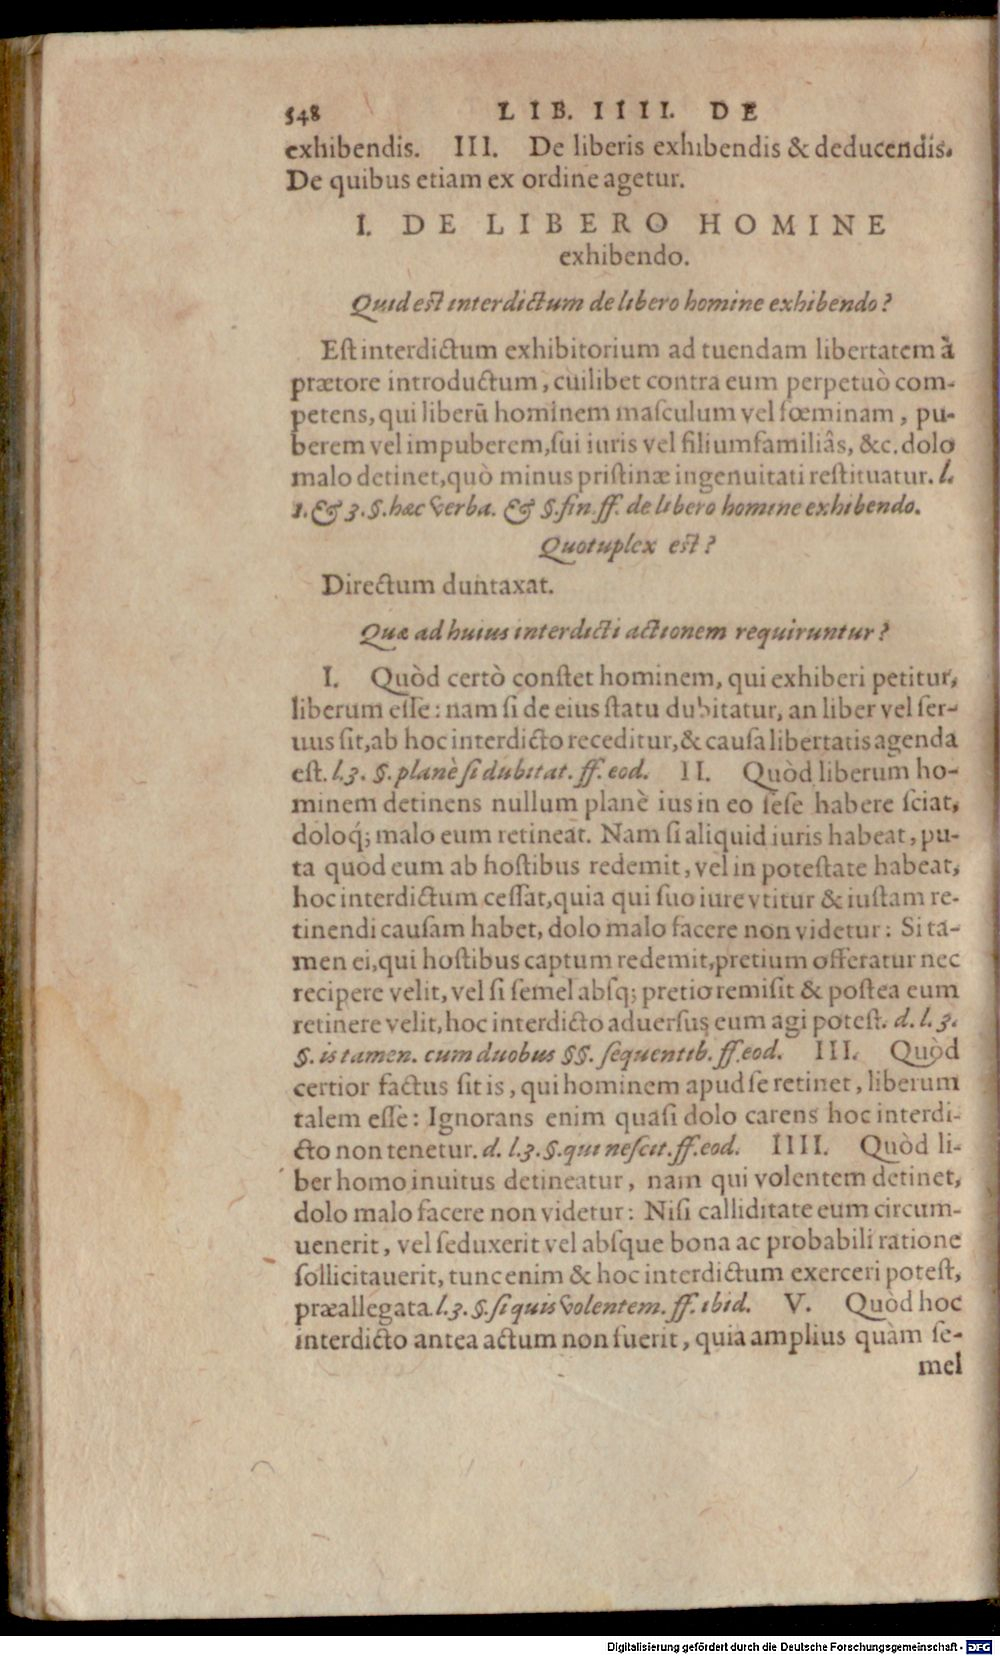 548 LIB. IIII. DE
exhibendis. III. De liberis exhibendis & deducendis.
De quibus etiam ex ordine agetur.
I. DE LIBERO HOMINE
exhibendo.
Quid est interdictum de libero homine exhibendo?
Est interdictum exhibitorium ad tuendam libertatem à
prætore introductum, cuilibet contra eum perpetuò com-
petens, qui liberū hominem masculum vel fœminam, pu-
berem vel impuberem, sui iuris vel filiumfamiliâs, &c. dolo
malo detinet, quò minus pristinæ ingenuitati restituatur. l.
1. & 3. §. hæc verba. & §. fin. ff. de libero homine exhibendo.
Quotuplex est?
Directum duntaxat.
Quæ ad huius interdicti actionem requiruntur?
I. Quòd certò constet hominem, qui exhiberi petitur,
liberum esse: nam si de eius statu dubitatur, an liber vel ser-
uus sit, ab hoc interdicto receditur, & causa libertatis agenda
est. l. 3. §. planè si dubitat. ff. eod. II. Quòd liberum ho-
minem detinens nullum planè ius in eo sese habere sciat,
doloq́; malo eum retineat. Nam si aliquid iuris habeat, pu-
ta quòd eum ab hostibus redemit, vel in potestate habeat,
hoc interdictum cessat, quia qui suo iure vtitur & iustam re-
tinendi causam habet, dolo malo facere non videtur: Si ta-
men ei, qui hostibus captum redemit, pretium offeratur nec
recipere velit, vel si semel absq; pretio remisit & postea eum
retinere velit, hoc interdicto aduersus eum agi potest. d. l. 3.
§. is tamen. cum duobus §§. sequentib. ff. eod. III. Quòd
certior factus sit is, qui hominem apud se retinet, liberum
talem esse: Ignorans enim quasi dolo carens hoc interdi-
cto non tenetur. d. l. 3. §. qui nescit. ff. eod. IIII. Quòd li-
ber homo inuitus detineatur, nam qui volentem detinet,
dolo malo facere non videtur: Nisi calliditate eum circum-
uenerit, vel seduxerit vel absque bona ac probabili ratione
sollicitauerit, tunc enim & hoc interdictum exerceri potest,
præallegata. l. 3. §. si quis volentem. ff. ibid. V. Quòd hoc
interdicto antea actum non fuerit, quia amplius quàm se-
mel
Digitalisierung gefördert durch die Deutsche Forschungsgemeinschaft - DFG